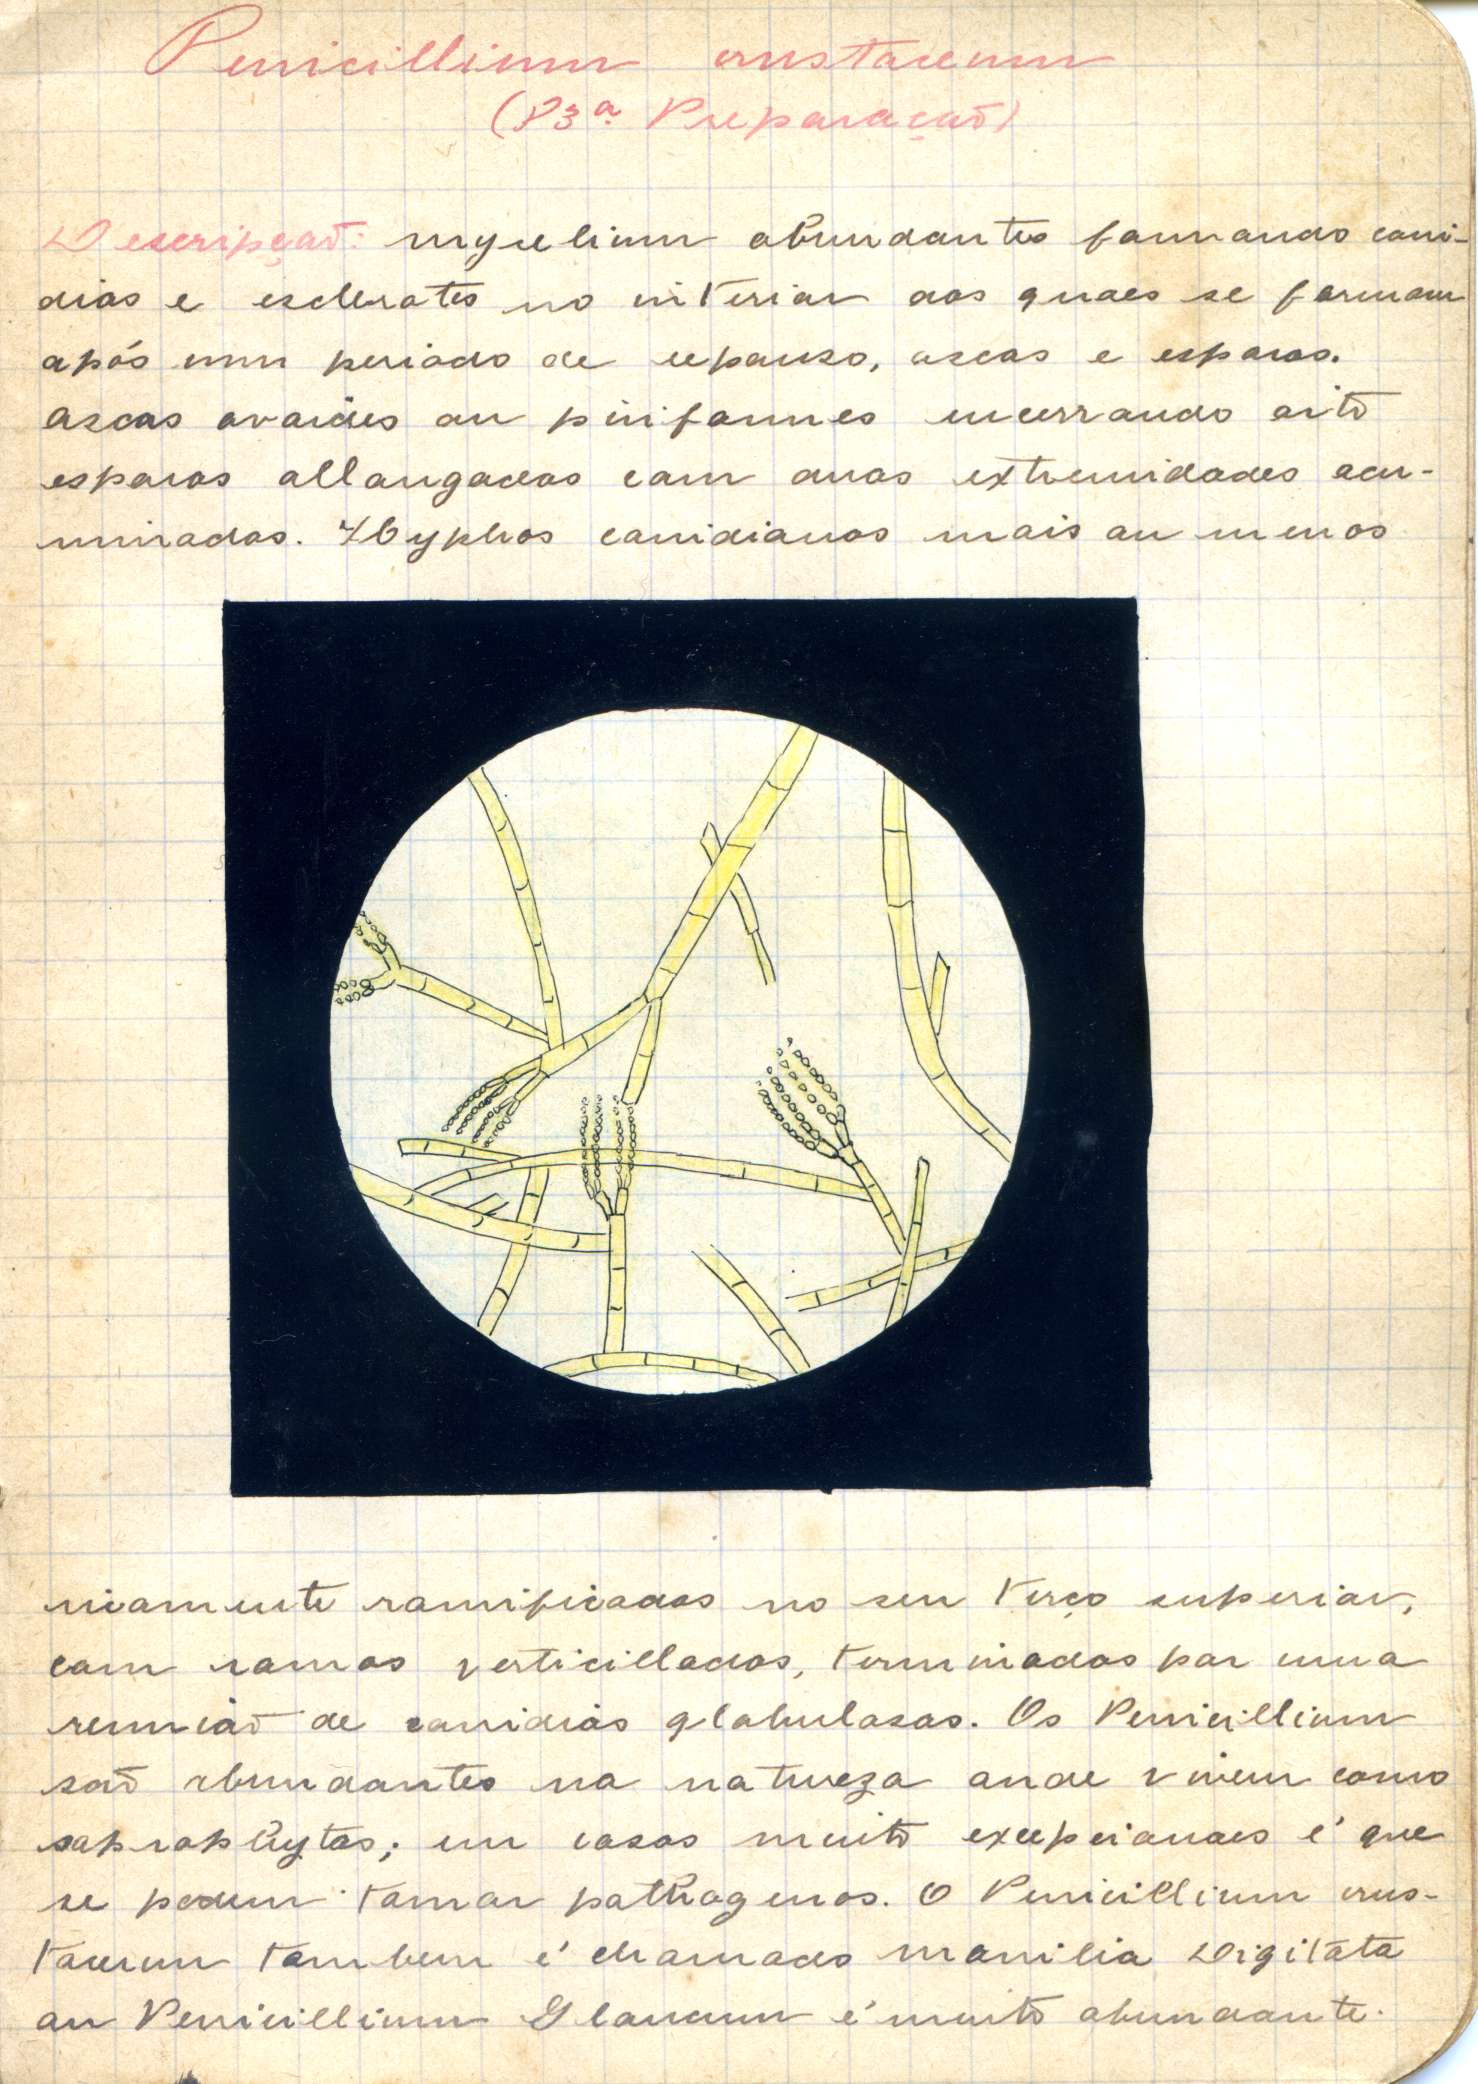 Penicillium crustaceum
(13ª Preparação)
Descripção: mycelium abundantes formando coni-
dias e esclerotes no interior dos quaes se formam
após um periodo de repouso, ascas e esporos.
Ascas ovoides ou piriformes encerrando oito
esporos allongados com duas extremidades acu-
minadas. Hyphos conidianos mais ou menos
ricamente ramificados no seu terço superior,
com ramos verticillados, terminados por uma
reunião de conidias globulosas. Os Penicillium
são abundantes na natureza onde vivem como
saprophytas; em casos muito excepcionaes é que
se podem tornar pathogenos. O Penicillium crus-
taceum tambem é chamado monilia Digitata
ou Penicillium Glaucum é muito abundante.